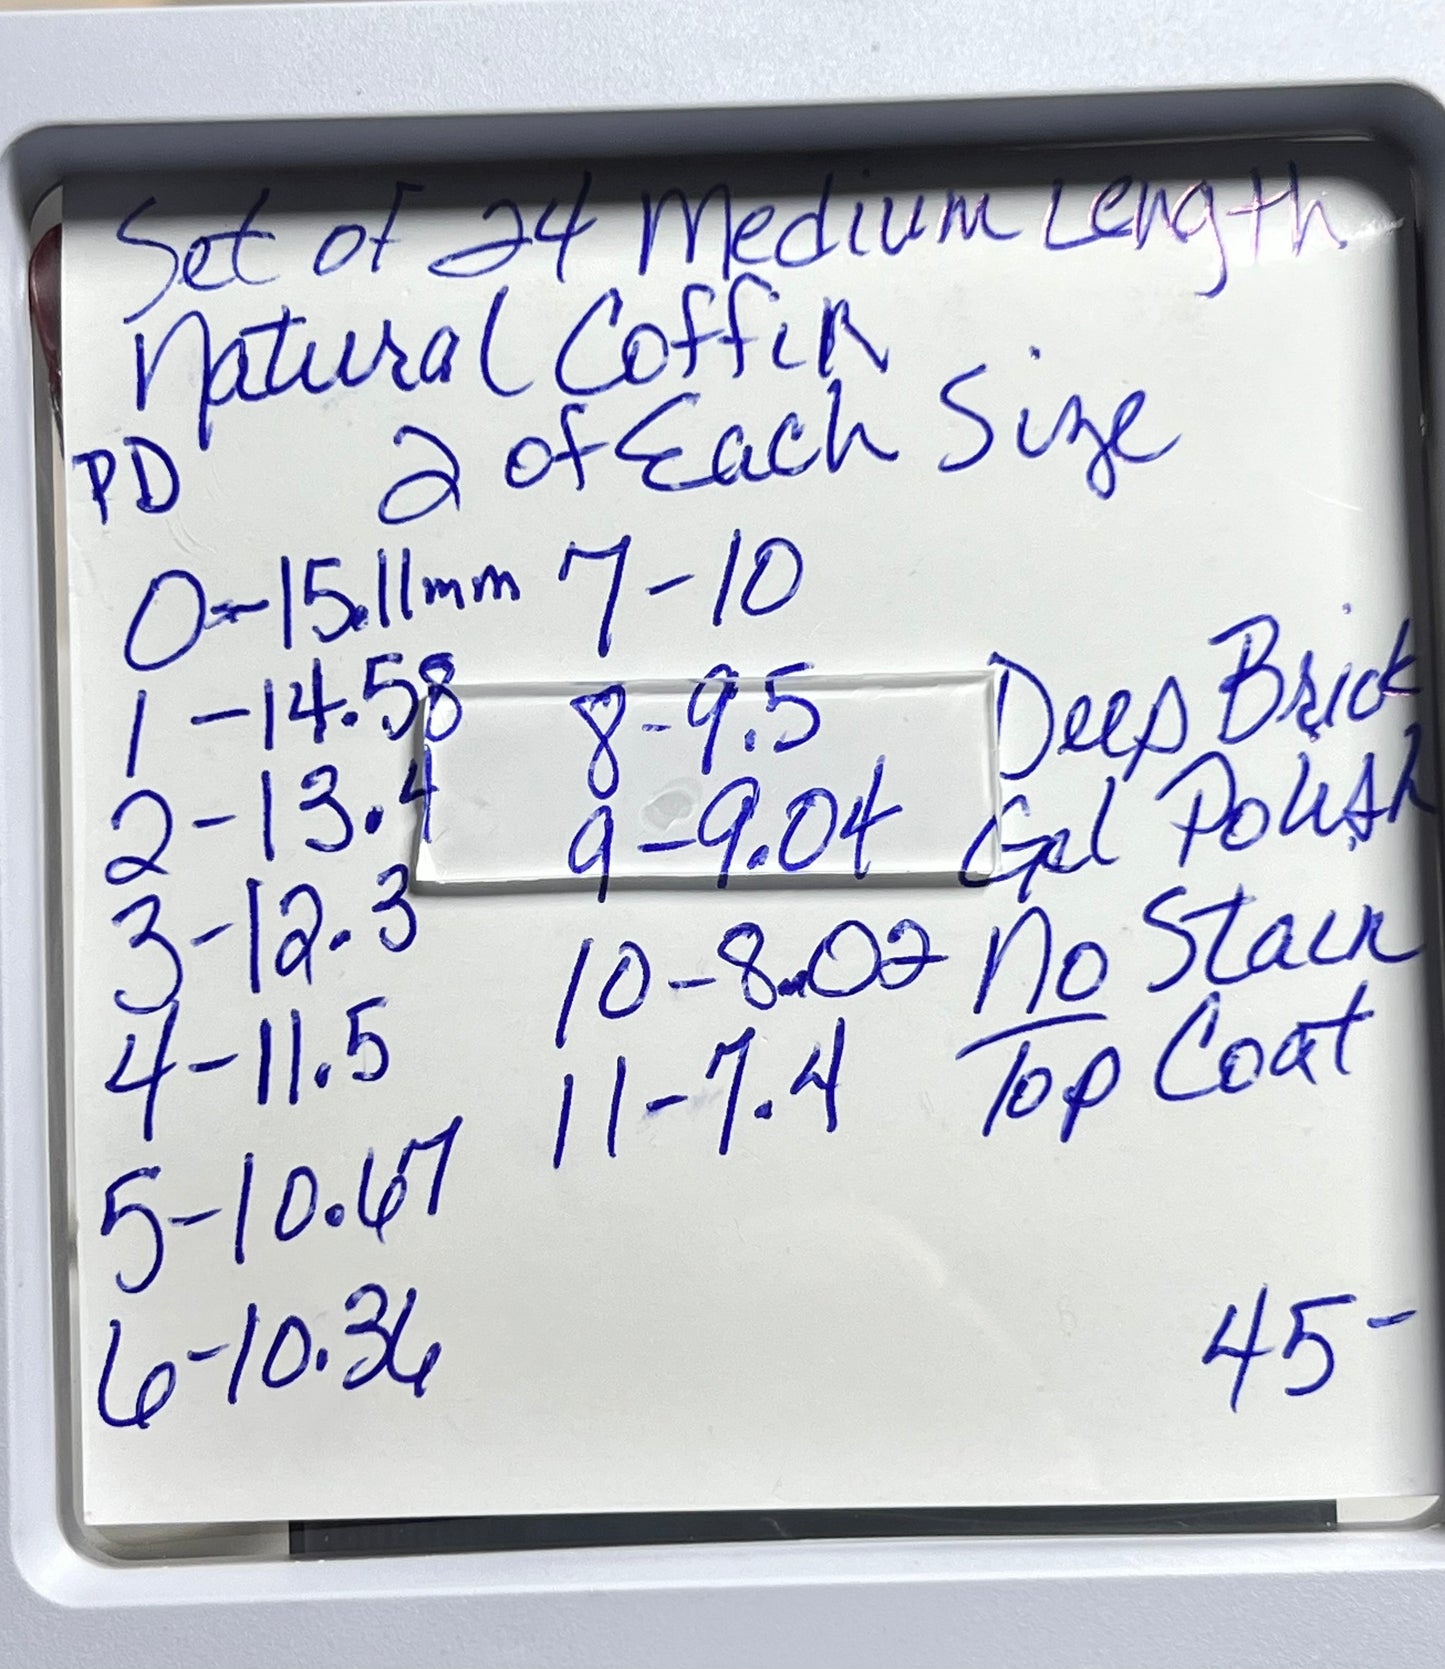 Set of 24 Medium Length
Natural Coffin
PD 2 of Each Size
0-15.11mm
1-14.58
2-13.4
3-12.3
4-11.5
5-10.67
6-10.36
7-10
8-9.5
9-9.04
10-8.02
11-7.4
Deep Brick
Gel Polish
No Stain
Top Coat
45-